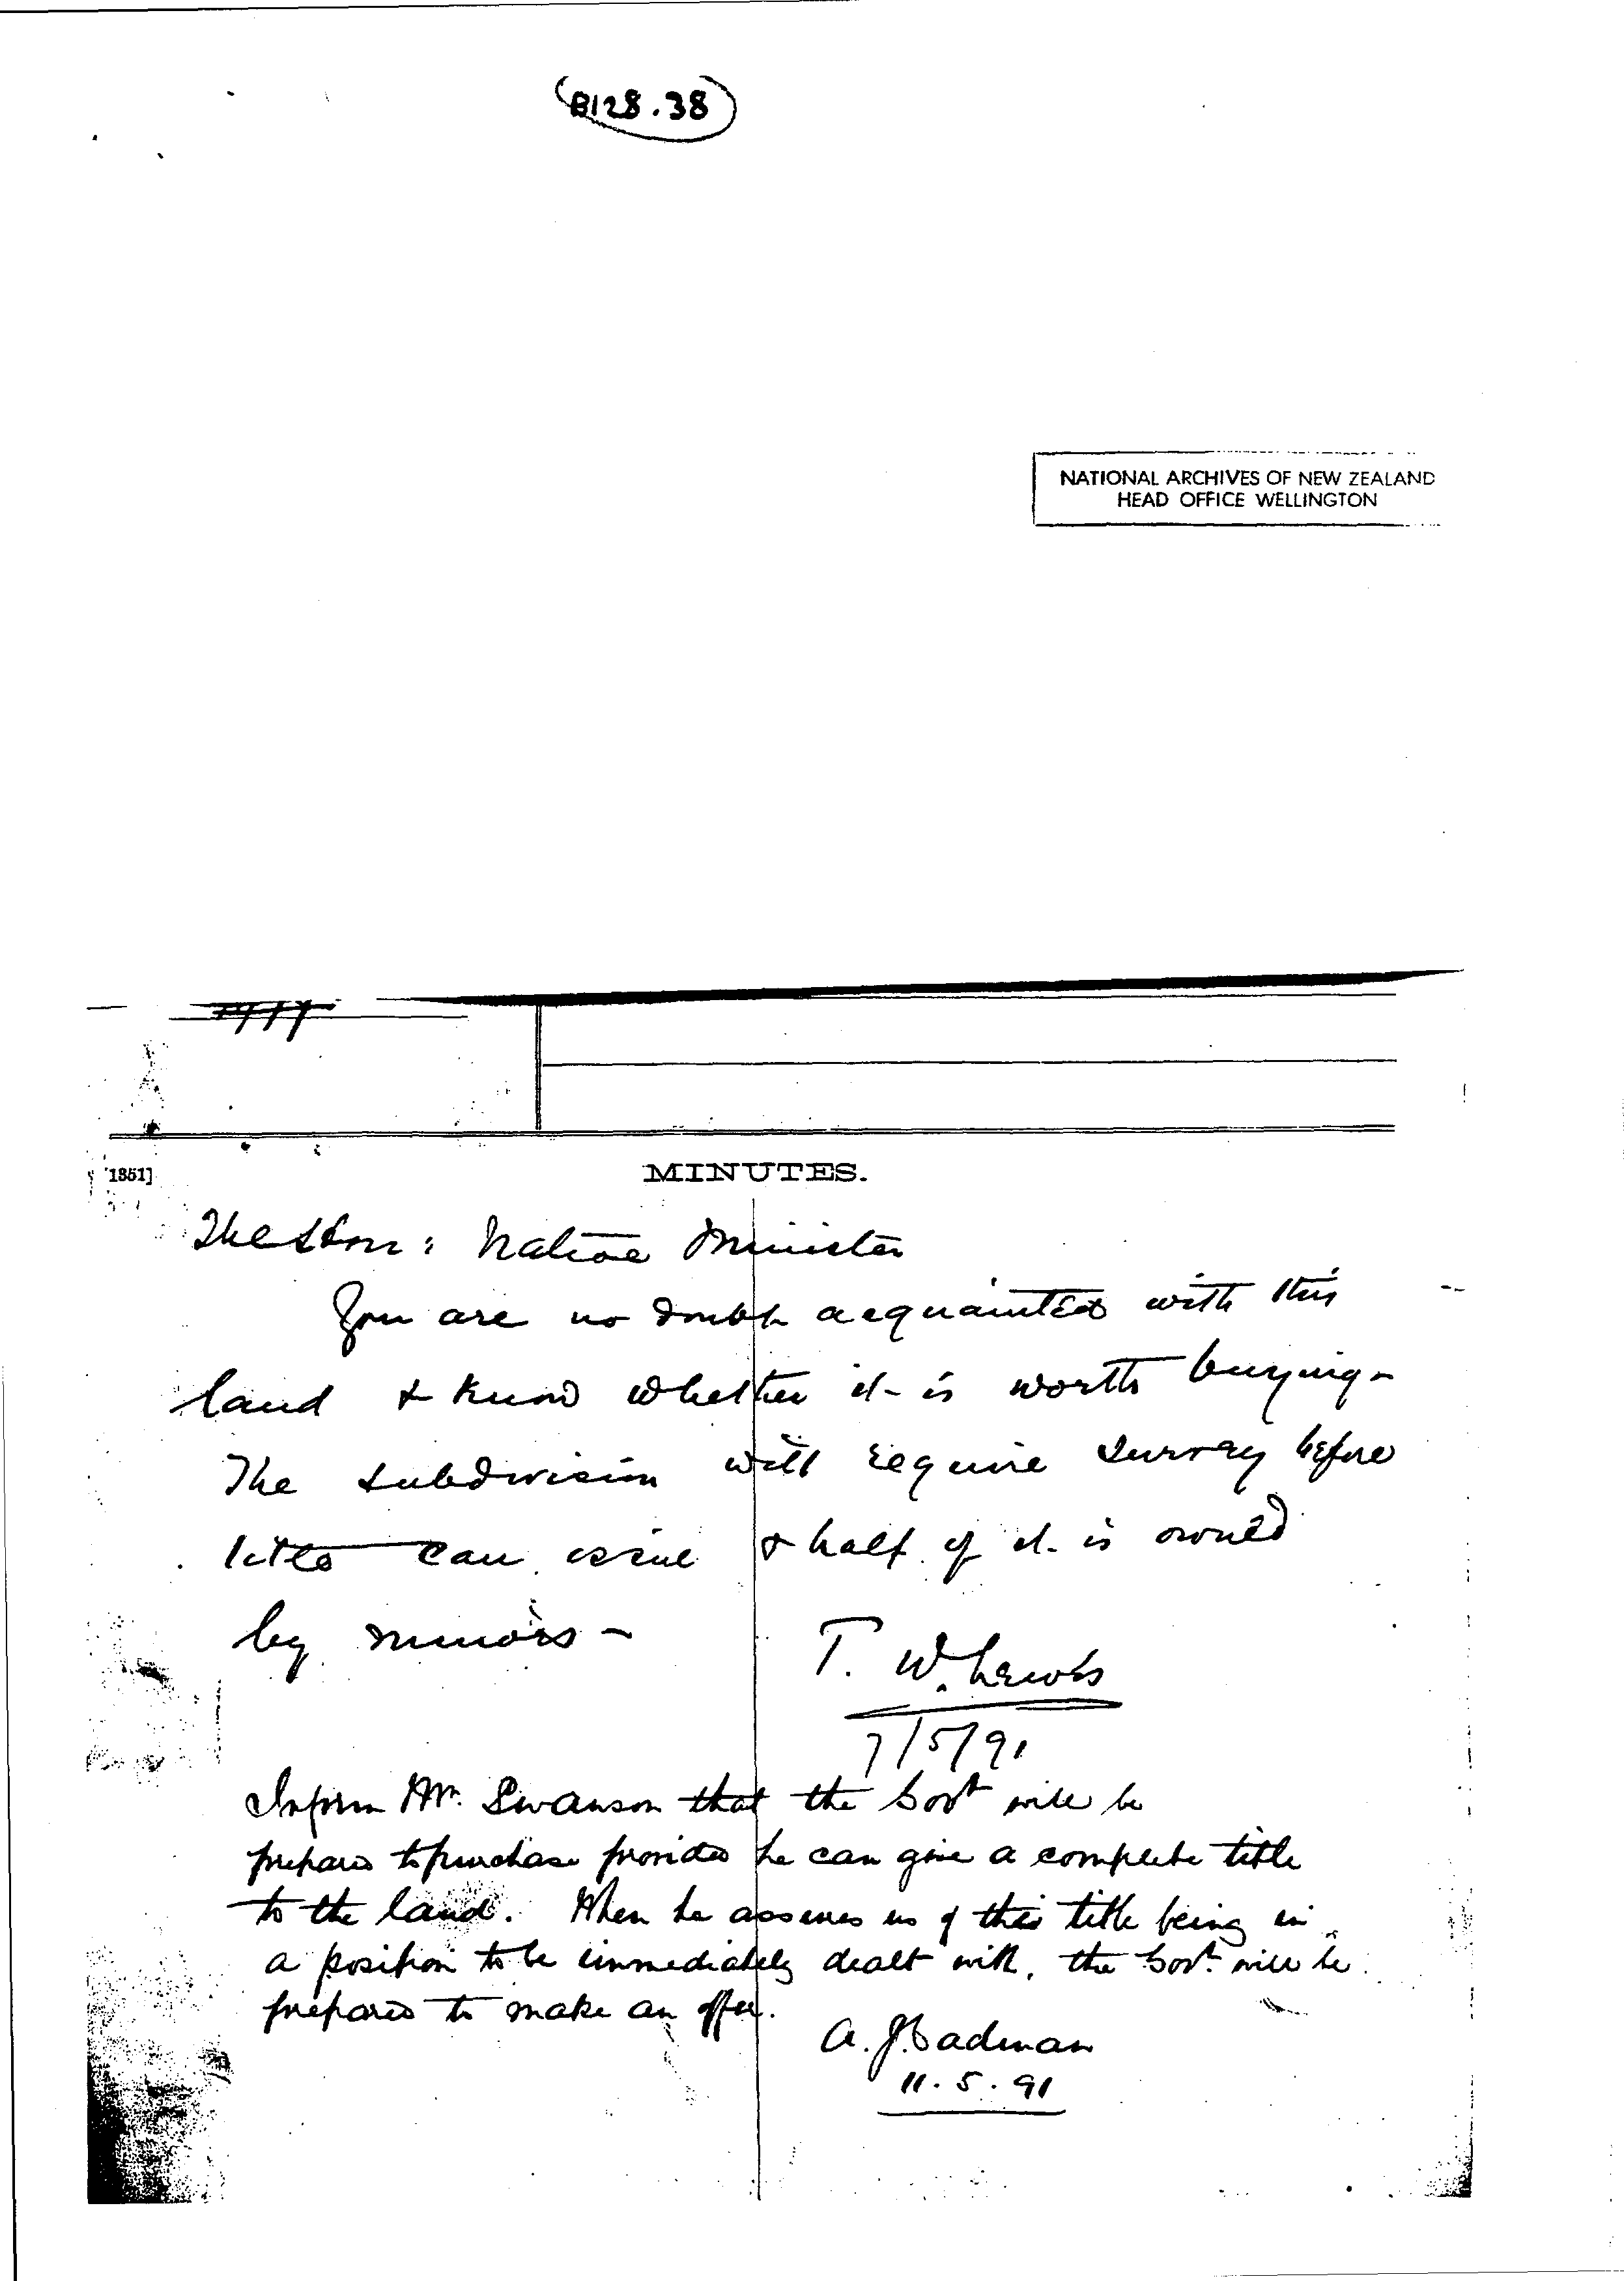 (B128.38)
NATIONAL ARCHIVES OF NEW ZEALAND
HEAD OFFICE WELLINGTON
1351]
MINUTES.
The Hon: Native Minister
You are no doubt acquainted with this
land & know whether it is worth buying -
The subdivision will require survey before
titles can issue & half of it is owned
by minors -
T. W. Lewis
7/5/91
Inform Mr. Swanson that the Govt will be
prepared to purchase provided he can give a complete title
to the land. When he assures us of this title being in
a position to be immediately dealt with, the Govt. will be
prepared to make an offer.
A. J. Cadman
11. 5. 91